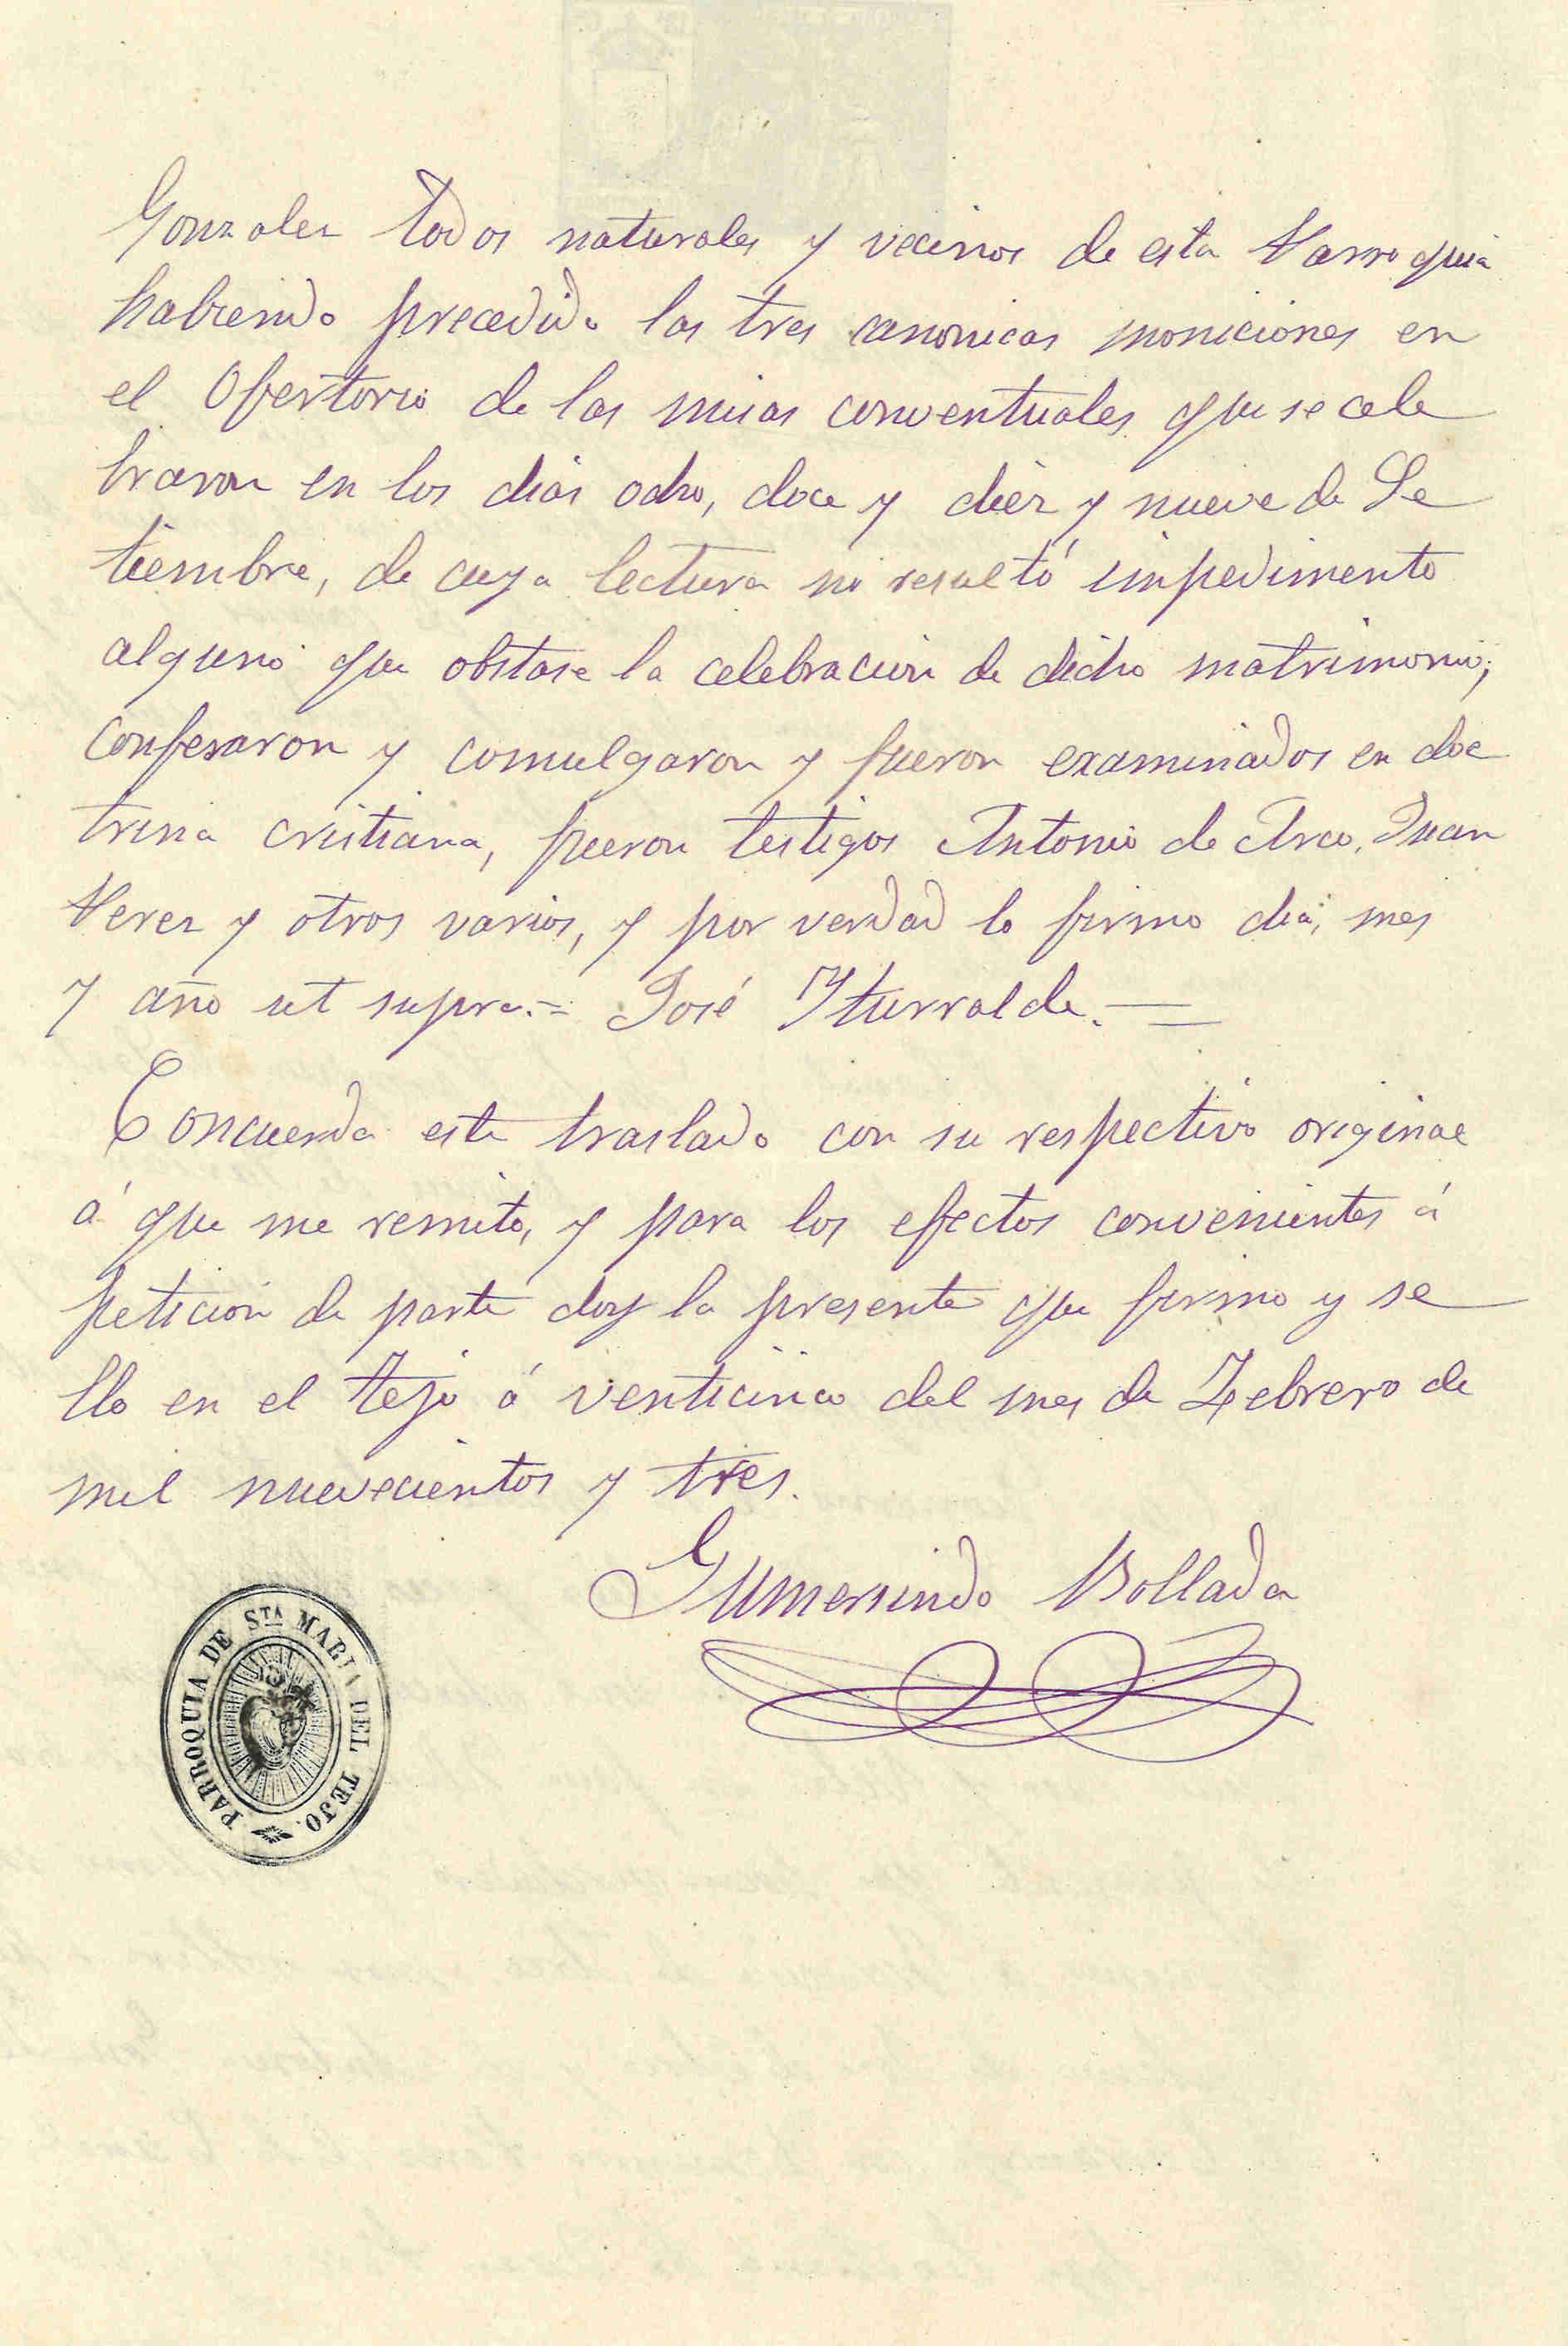 Gonzalez todos naturales y vecinos de esta Parroquia
habiendo precedido las tres canonicas moniciones en
el Ofertorio de las misas conventuales que se cele
braron en los dias ocho, doce y diez y nueve de Se
tiembre, de cuya lectura no resultó impedimento
alguno que obstase la celebracion de dicho matrimonio;
confesaron y comulgaron y fueron examinados en doc
trina cristiana, fueron testigos Antonio de Arce, Juan
Perez y otros varios, y por verdad lo firmo dia, mes
y año ut supra.= José Yturralde.=
Concuerda este traslado con su respectivo original
á que me remito, y para los efectos convenientes á
peticion de parte doy la presente que firmo y se
llo en el Tejo á venticinco del mes de Febrero de
mil nuevecientos y tres.
Gumersindo Bollada
PARROQUIA DE STA MARIA DEL TEJO.